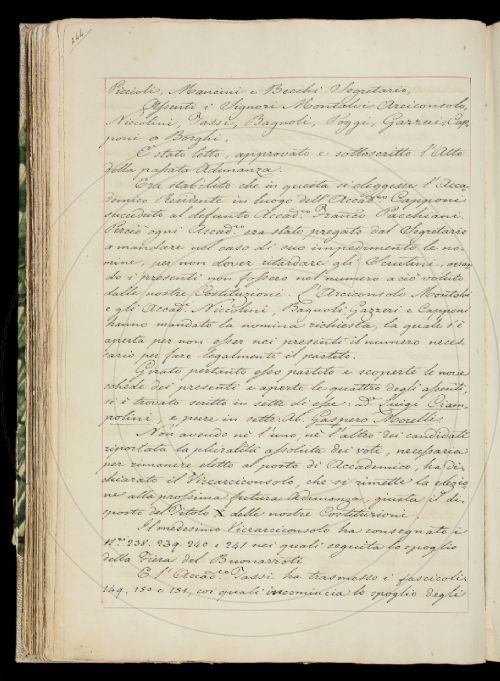 244
Piccioli, Mancini e Becchi Segretario,
Assenti i Signori Montalvi Arciconsolo,
Niccolini, Tassi, Bagnoli, Poggi, Gazzeri, Cap-
poni e Borghi.
E' stato letto, approvato e sottoscritto l'Atto
della passata Adunanza.
Era stabilito che in questa si eleggesse l'Acca-
demico Residente in luogo dell'Accad.co Capponi
succeduto al defunto Accad.co Franc.o Pacchiani.
Perciò ogni Accad.co era stato pregato dal Segretario
a mandare nel caso di suo impedimento le no-
mine, per non dover ritardare gli Scrutini, quan-
do i presenti non fossero nel numero a ciò voluto
dalle nostre Costituzioni. L'Arciconsolo Montalvi
e gli Accad.i Niccolini, Bagnoli, Gazzeri e Capponi
hanno mandato la nomina richiesta, la quale s'è
aperta per non esser nei presenti il numero neces-
sario per fare legalmente il partito.
Girato pertanto esso partito e scoperte le nove
schede dei presenti e aperte le quattro degli assenti,
si è trovato scritto in sette di esse D. Luigi Ciam-
polini, e pure in sette Ab. Gaspero Morelli.
Non avendo nè l'uno, nè l'altro dei candidati
riportata la pluralità assoluta dei voti, necessaria
per rimanere eletto al posto di Accademico, ha di-
chiarato il Vicearciconsolo, che si rimette la elezio-
ne alla prossima futura Adunanza, giusta il di-
sposto del Titolo X delle nostre Costituzioni.
Il medesimo Vicearciconsolo ha consegnato i
N.ri 238. 239. 240 e 241 nei quali seguita lo spoglio
della Fiera del Buonarroti.
E l'Accad.co Tassi ha trasmesso i fascicoli
149, 150 e 151, coi quali incomincia lo spoglio degli